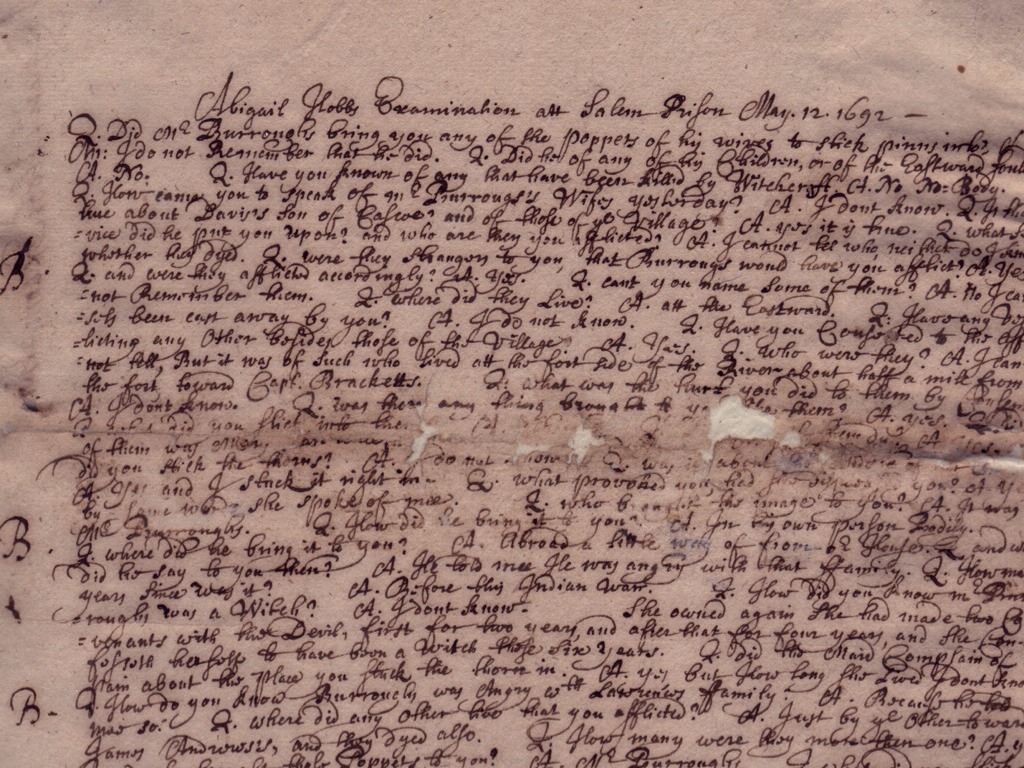 Abigail Hobbs Examination att Salem Prison May. 12. 1692 —
Q. Did Mr Burroughs bring you any of the poppets of his wives to stick pinns into?
An: I do not Remember that he did. Q. Did he of any of his Children, or of the Eastward Soul
A. No. Q. Have you known of any that have been killed by Witchcraft. A. No. No-Body.
Q. How came you to speak of Mr Burroughs's Wifes yesterday? A. I dont know. Q. Is th
true about Davis's son of Casco? and of those of ye Village? A. yes it is true. Q. what S
=vice did he put you upon? and who are they you afflicted? A. I cannot tel who, neither do I know
whether they dyed. Q. were they strangers to you, that Burroughs would have you afflict? A. Yes
Q. and were they afflicted accordingly? A. Yes. Q. cant you name some of them? A. No I ca
=not Remember them. Q. where did they Live? A. att the Eastward. Q. Have any Ve
=sels been cast away by you? A. I do not know. Q. Have you Consented to the aff
=licting any Other besides those of the Village? A. Yes. Q. who were they? A. I can
=not tell, But it was of such who lived att the fort side of the River about half a mile from
the fort, toward Capt. Bracketts. Q. what was the hurt you did to them by Consen
A. I dont know. Q. was there any thing brought to you like them? A. Yes.
Q. what did you stick into them
of them was
did you stick the thorns? A. I do not know. Q. was it about
A. Yes and I stuck it right in. Q. what provoked you, had she displeased you? A. Ye
by some words she spoke of mee. Q. who brought the image to you? A. It was
Mr Burroughs. Q. How did he bring it to you? A. In his own person Bodily.
Q. where did he bring it to you? A. Abroad a little way of from or House. Q. and w
did he say to you then? A. He told mee He was angry with that family. Q. How ma
years since was it? A. Before this Indian War. Q. How did you know Mr Bur
=roughs was a Witch? A. I dont know. She owned again she had made two Co
=venants with the Devil, first for two years, and after that for four years, and she Con
fesseth herself to have been a Witch these six years. Q. did the Maid Complain of
pain about the place you stuck the thorn in. A. yes but How long she Lived I dont kno
Q. How do you know Burroughs was Angry wth Lawrences family? A. Because he told
mee so. Q. where did any other live that you afflicted? A. Just by ye Other toward
James Andrews's, and they dyed also. Q. How many were they more then one? A. y
those Poppets to you? A. Mr Burroughs
B.
B.
B.